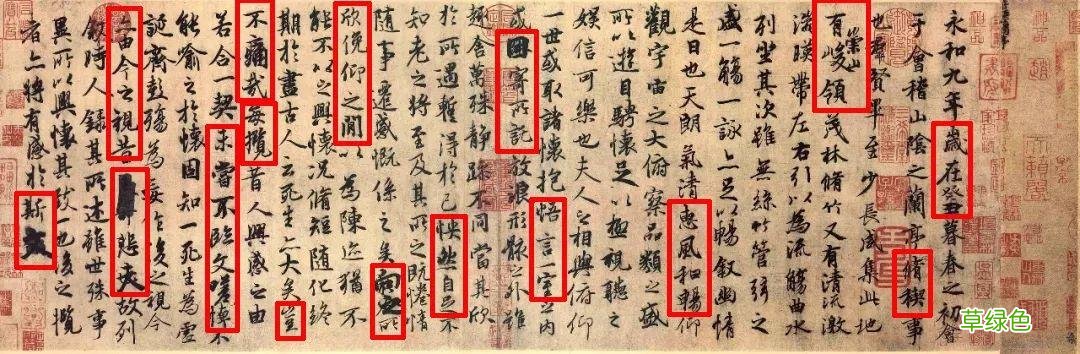 永和九年歲在癸丑暮春之初會
于會稽山陰之蘭亭脩稧事
也羣賢畢至少長咸集此地
有崇山峻領茂林脩竹又有清流激
湍暎帶左右引以為流觴曲水
列坐其次雖無絲竹管弦之
盛一觴一詠亦足以暢敘幽情
是日也天朗氣清惠風和暢仰
觀宇宙之大俯察品類之盛
所以遊目騁懷足以極視聽之
娛信可樂也夫人之相與俯仰
一世或取諸懷抱悟言一室之內
或因寄所託放浪形骸之外雖
趣舍萬殊靜躁不同當其欣
於所遇暫得於己怏然自足不
知老之將至及其所之既惓情
隨事遷感慨係之矣向之所
欣俛仰之閒以為陳迹猶不
能不以之興懷況脩短隨化終
期於盡古人云死生亦大矣豈
不痛哉每攬昔人興感之由
若合一契未嘗不臨文嗟悼不
能喻之於懷固知一死生為虛
誕齊彭殤為妄作後之視今
亦由今之視昔悲夫故列
敘時人錄其所述雖世殊事
異所以興懷其致一也後之攬
者亦將有感於斯文
草绿色